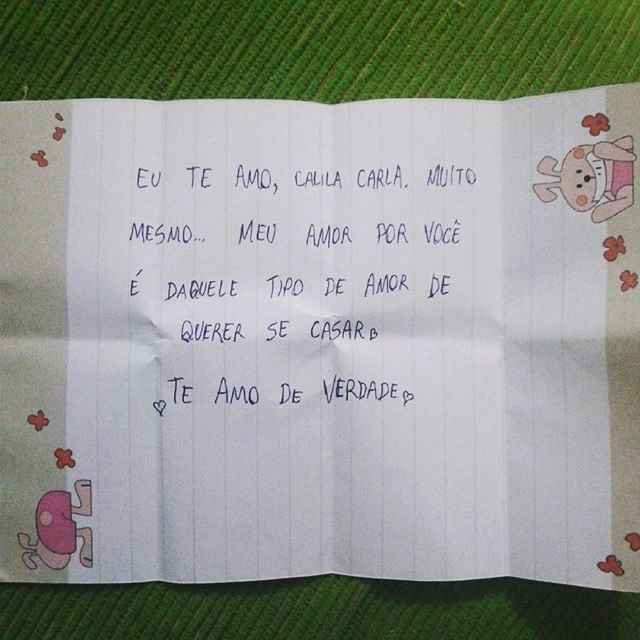 EU TE AMO, CALILA CARLA. MUITO
MESMO... MEU AMOR POR VOCÊ
É DAQUELE TIPO DE AMOR DE
QUERER SE CASAR
TE AMO DE VERDADE